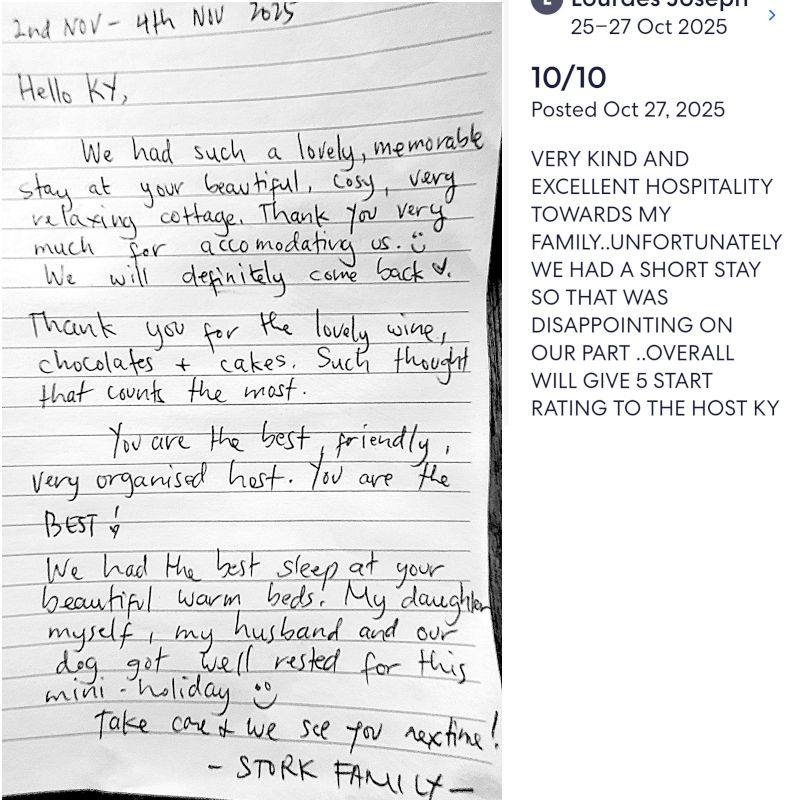 2nd NOV - 4th NOV 2025
Hello KY,
We had such a lovely, memorable
stay at your beautiful, cosy, very
relaxing cottage. Thank you very
much for accomodating us. ☺
We will definitely come back ♥.
Thank you for the lovely wine,
chocolates + cakes. Such thought
that counts the most.
You are the best, friendly,
very organised host. You are the
BEST!
We had the best sleep at your
beautiful warm beds. My daughter
myself, my husband and our
dog got well rested for this
mini-holiday ☺
Take care & we see you nextime!
- STORK FAMILY -
L Lourdes Joseph
25–27 Oct 2025
10/10
Posted Oct 27, 2025
VERY KIND AND
EXCELLENT HOSPITALITY
TOWARDS MY
FAMILY..UNFORTUNATELY
WE HAD A SHORT STAY
SO THAT WAS
DISAPPOINTING ON
OUR PART ..OVERALL
WILL GIVE 5 START
RATING TO THE HOST KY